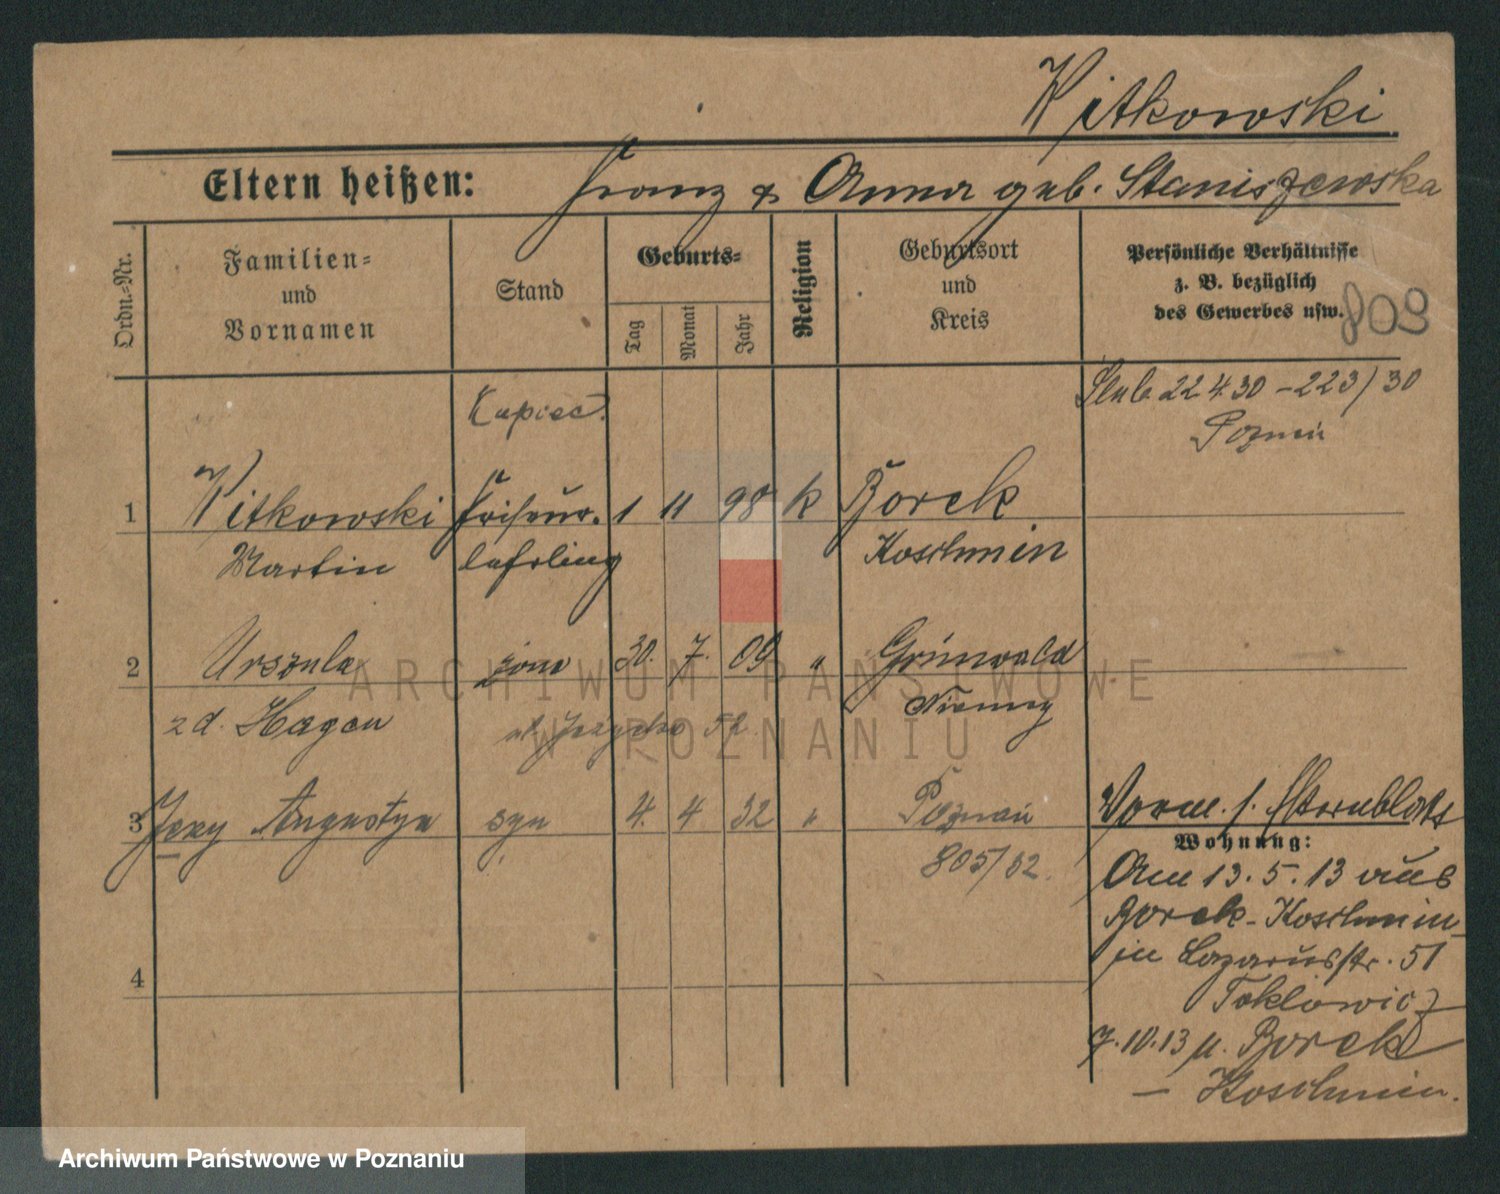 Witkowski
Eltern heißen: Franz & Anna geb. Staniszewska
Ordn.-Nr.
Familien-
und
Vornamen
Stand
Geburts-
Tag
Monat
Jahr
Religion
Geburtsort
und
Kreis
Persönliche Verhältnisse
z. B. bezüglich
des Gewerbes usw.
809
Kupiec.
Ślub 22 4 30 - 223/30
Poznań
1 Witkowski Friseur- 1 11 98 k Borek
Martin lehrling Koschmin
2 Urszula żona 30. 7. 09 " Grunwald
zd. Hagen Niemcy
52
3 Jerzy Augustyn syn 4. 4 32 " Poznań
805/32.
Vorm. f.
Wohnung:
Am 13. 5. 13 aus
Borek - Koschmin
in Lazarusstr. 51
7.10.13 n. Borek
- Koschmin.
4
ARCHIWUM PAŃSTWOWE
W POZNANIU
Archiwum Państwowe w Poznaniu